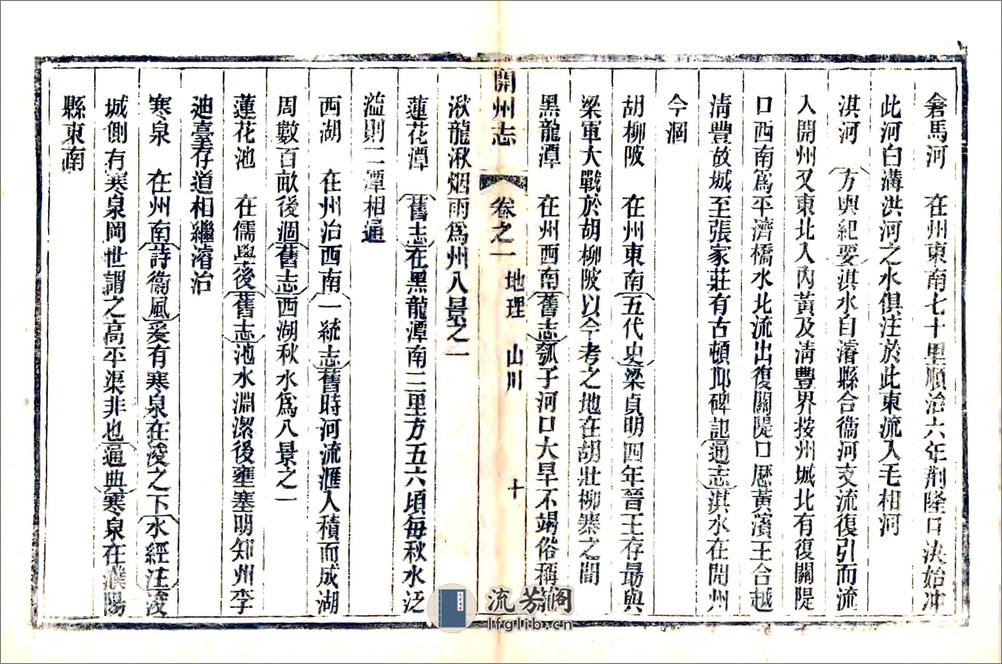 倉馬河　在州東南七十里順治六年荆隆口決始冲
此河白溝洪河之水俱注於此東流入毛相河
淇河　方輿紀要淇水自濬縣合衞河支流復引而流
入開州又東北入內黃及清豐界按州城北有復關隄
口西南爲平濟橋水北流出復關隄口歷黃濱王合越
清豐故城至張家莊有古頓邱碑記通志淇水在開州
今涸
胡柳陂　在州東南五代史梁貞明四年晉王存勗與
梁軍大戰於胡柳陂以今考之地在胡壯柳寨之間
黑龍潭　在州西南舊志瓠子河口大旱不竭俗稱龍
湫龍湫烟雨爲州八景之一
開州志　卷之一　地理　山川　十
蓮花潭　舊志在黑龍潭南三里方五六頃每秋水泛
溢則二潭相通
西湖　在州治西南一統志舊時河流滙入積而成湖
周數百畝後涸舊志西湖秋水爲八景之一
蓮花池　在儒學後舊志池水淵潔後壅塞明知州李
迪臺存道相繼濬治
寒泉　在州南詩衞風爰有寒泉在浚之下水經注浚
城側有寒泉岡世謂之高平渠非也通典寒泉在濮陽
縣東南
流芳阁
lfglib.cn